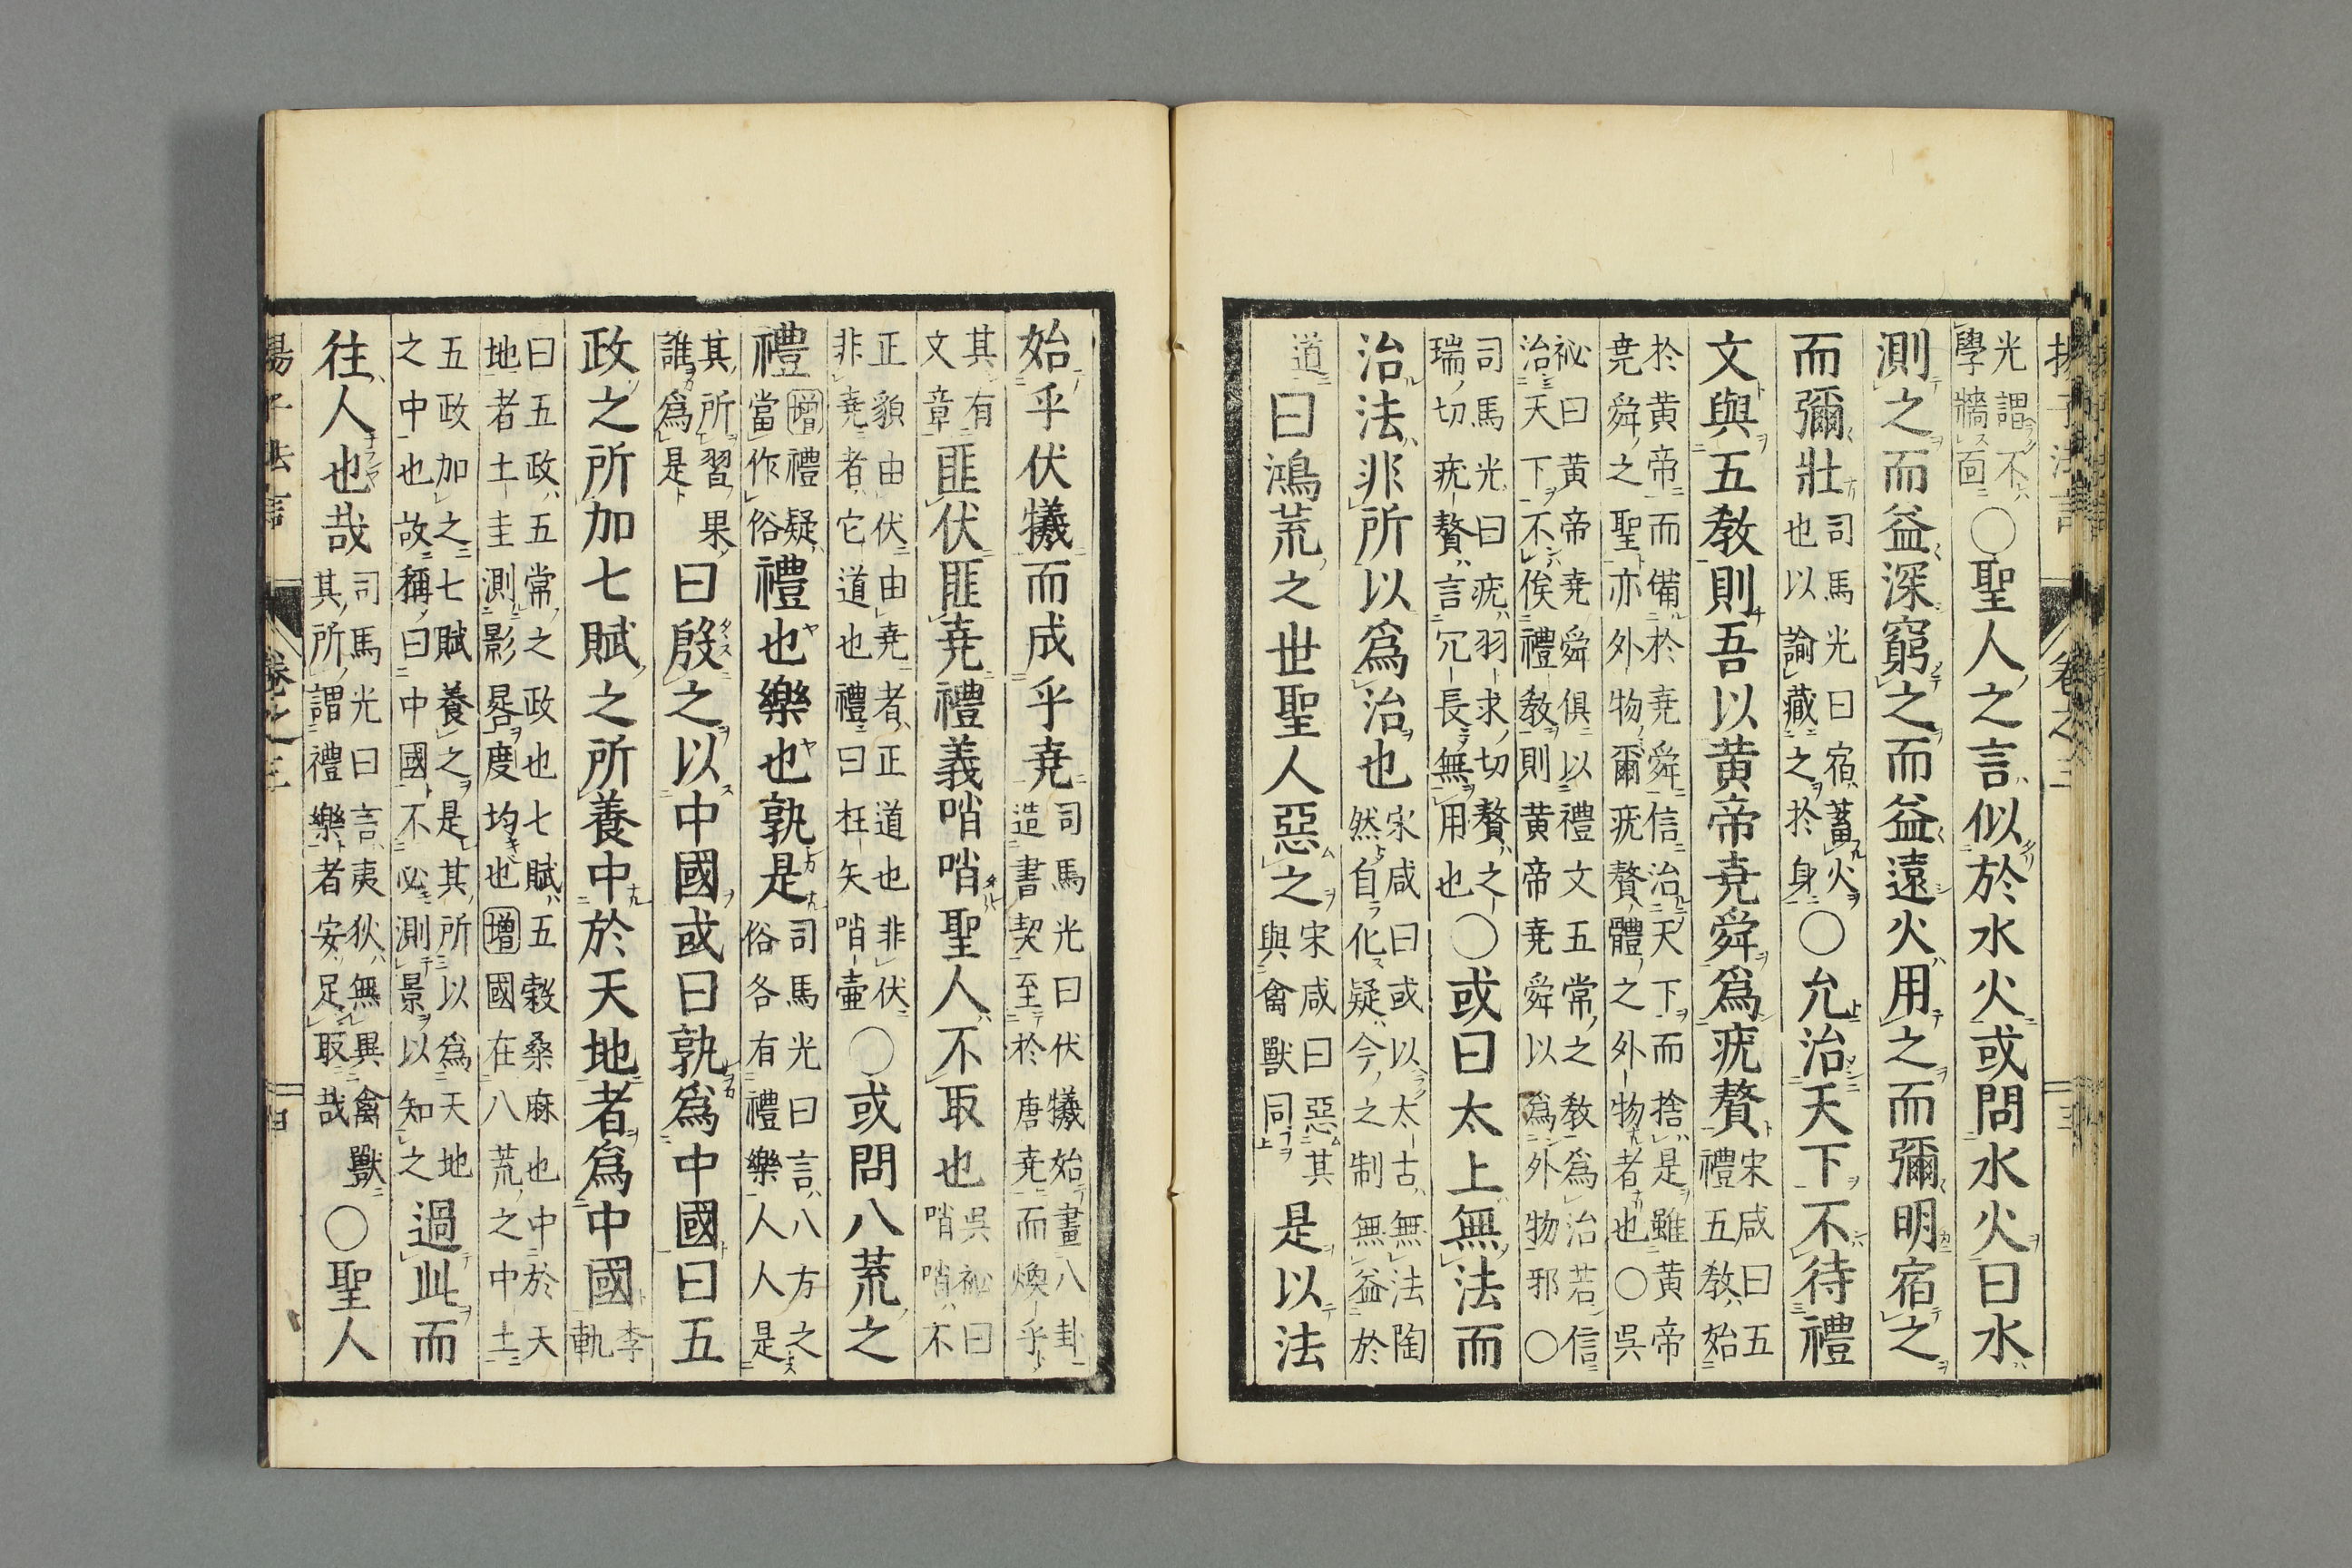 揚子法言 卷之三 三
光謂不
學牆面
○聖人之言似於水火或問水火曰水
測之而益深窮之而益遠火用之而彌明宿之
而彌壯
司馬光曰宿蓄火
也以諭藏之於身
○允治天下不待禮
文與五教則吾以黃帝堯舜爲疣贅
宋咸曰五
禮五教始
於黃帝而備於堯舜信治天下而捨是雖黃帝
堯舜之聖亦外物爾疣贅體之外物者也○吳
祕曰黃帝堯舜俱以禮文五常之教爲治若信
治天下不俟禮教則黃帝堯舜以爲外物邪○
司馬光曰疣羽求切贅之
瑞切疣贅言冗長無用也
○或曰太上無法而
治法非所以爲治也
宋咸曰或以太古無法陶
然自化疑今之制無益於
道
曰鴻荒之世聖人惡之
宋咸曰惡其
與禽獸同
是以法
始乎伏犧而成乎堯
司馬光曰伏犧始畫八卦
造書契至於唐堯而煥乎
其有
文章
匪伏匪堯禮義哨哨聖人不取也
吳祕曰
哨哨不
正貌由伏由堯者正道也非伏
非堯者它道也禮曰枉矢哨壷
○或問八荒之
禮
增禮疑
當作俗
禮也樂也孰是
司馬光曰言八方之
俗各有禮樂人人是
其所習果
誰爲是
曰殷之以中國或曰孰爲中國曰五
政之所加七賦之所養中於天地者爲中國
李
軌
曰五政五常之政也七賦五穀桑麻也中於天
地者土圭測影晷度均也增國在八荒之中土
五政加之七賦養之是其所以爲天地
之中也故稱曰中國不必測景以知之
過此而
往人也哉
司馬光曰言夷狄無異禽獸
其所謂禮樂者安足取哉
○聖人
揚子法言 卷之三 四